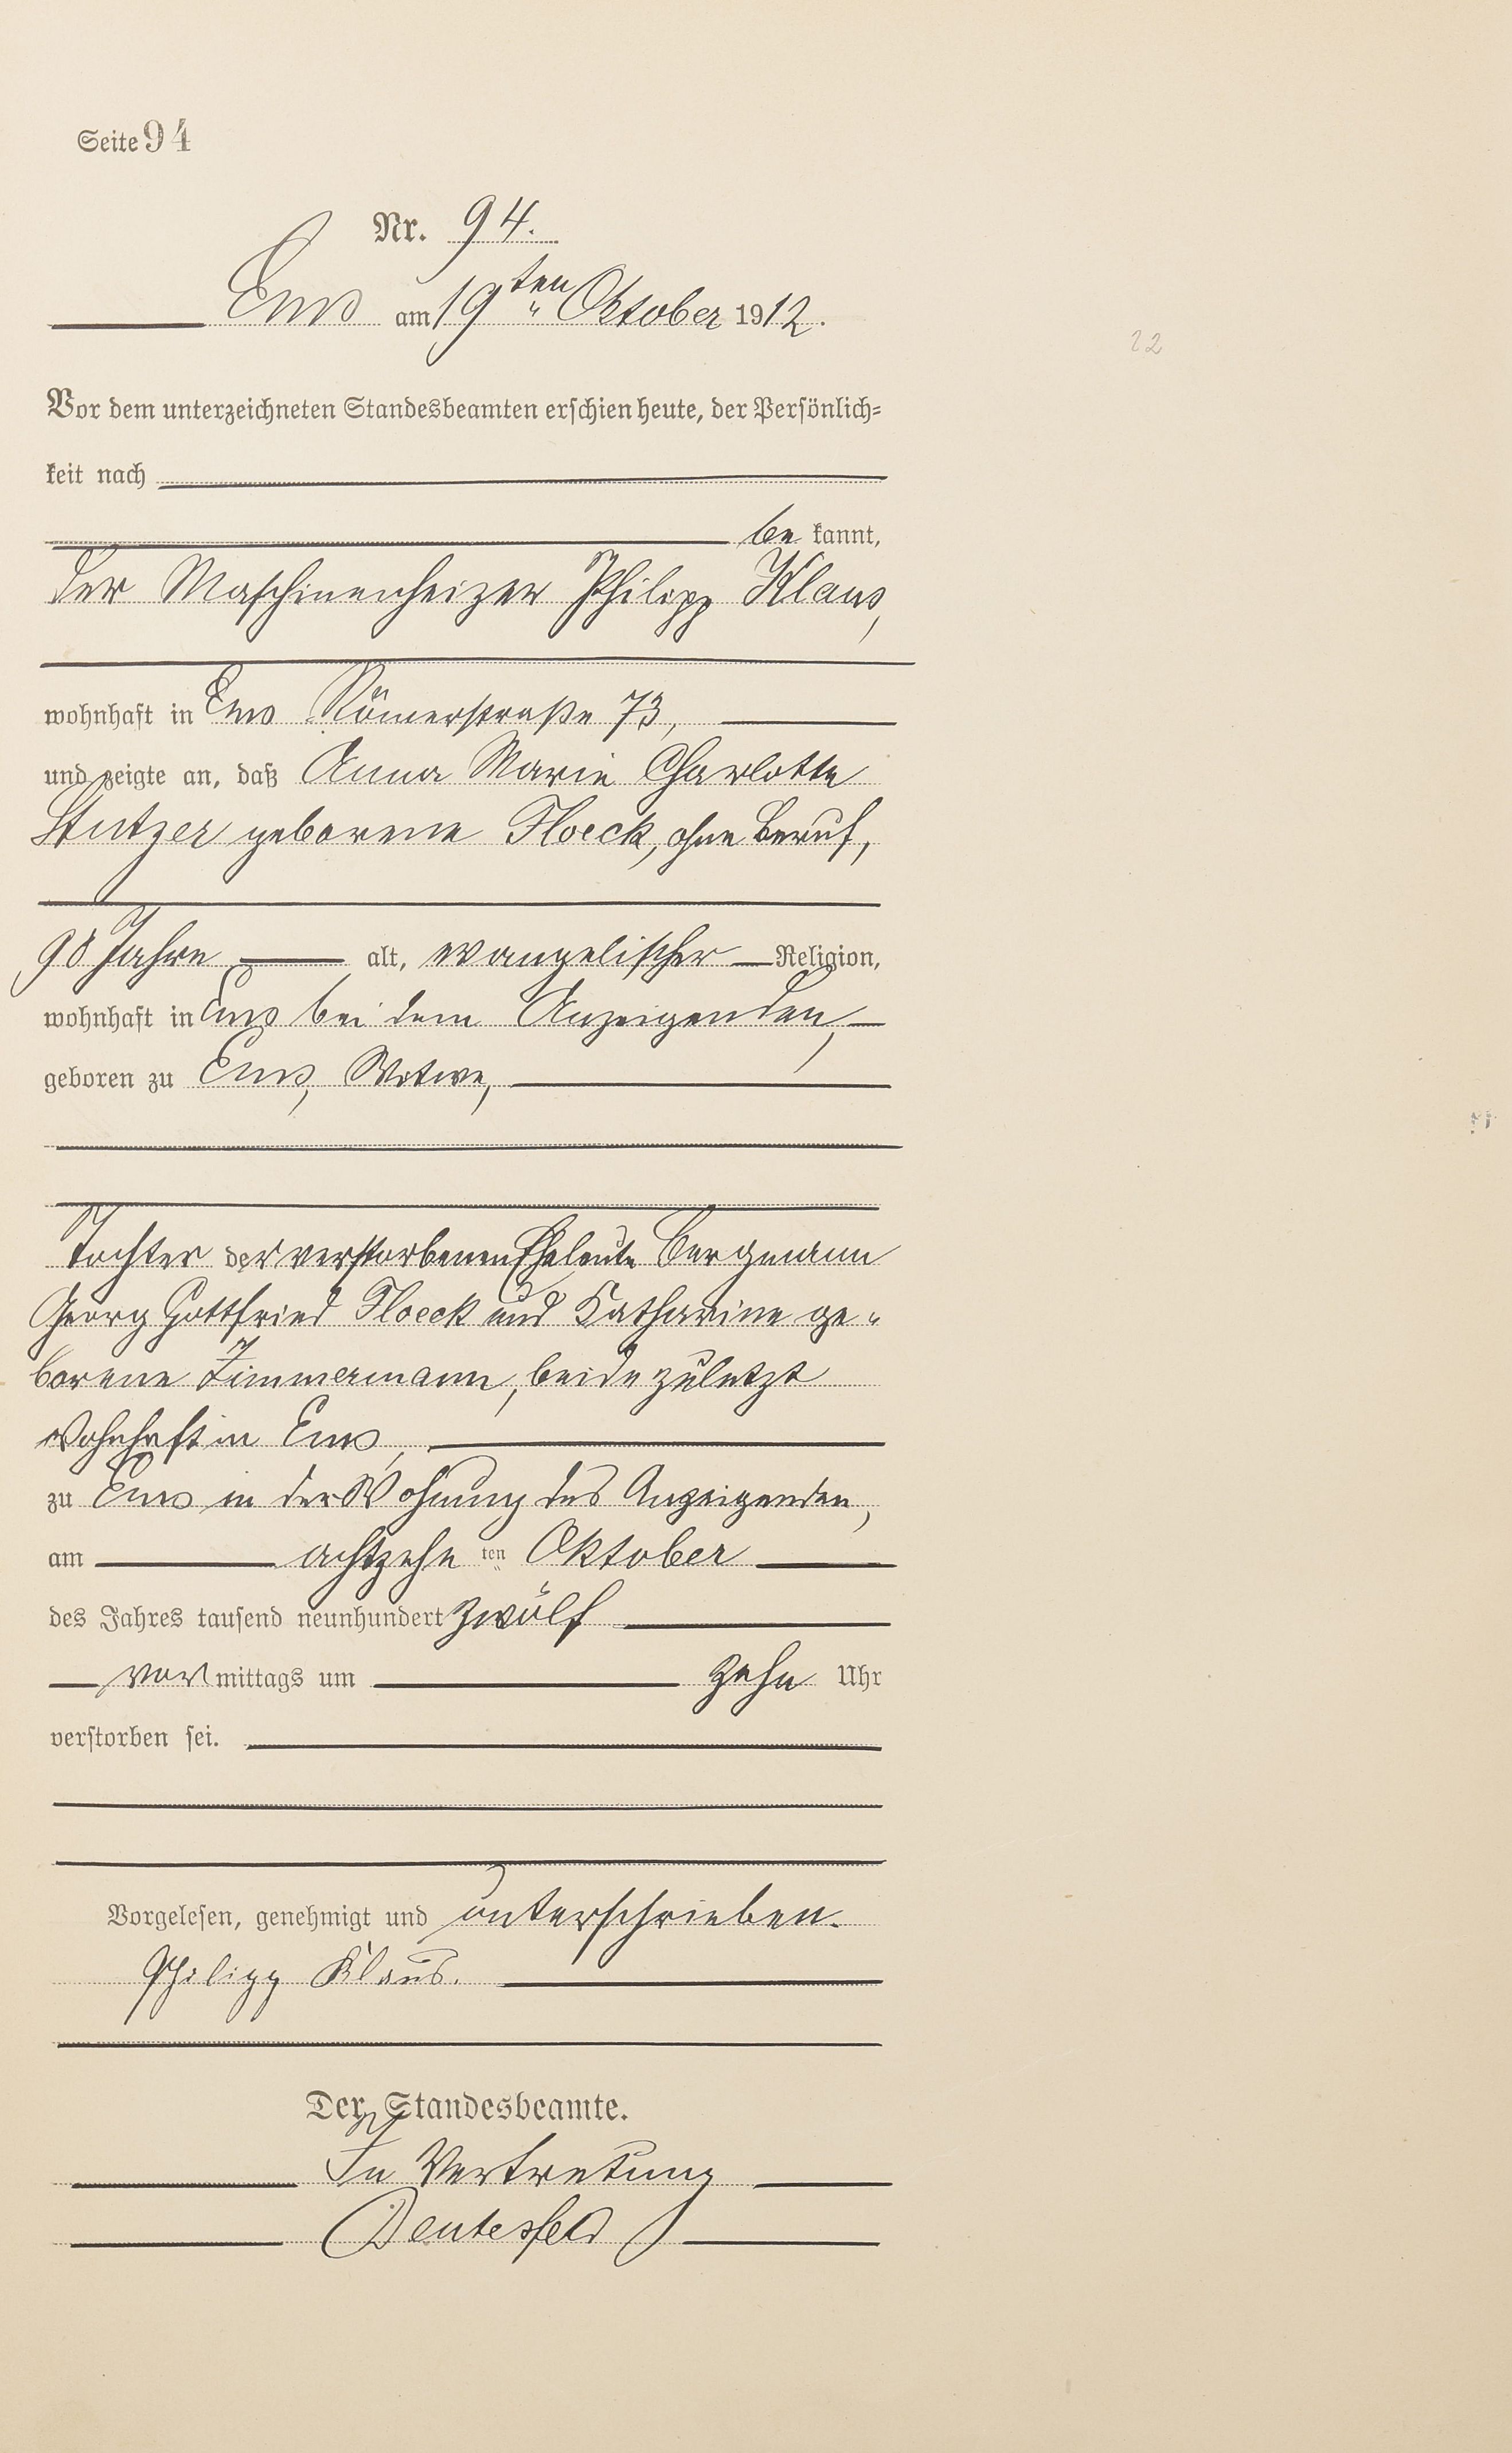 Seite 94
Nr. 94.
Ems am 19ten Oktober 1912.
22
Vor dem unterzeichneten Standesbeamten erschien heute, der Persönlich=
keit nach
be kannt,
der Maschinenheizer Philipp Klaus,
wohnhaft in Ems Römerstraße 73,
und zeigte an, daß Anna Marie Charlotte
Stutzer geborene Floeck, ohne Beruf,
90 Jahre alt, evangelischer Religion,
wohnhaft in Ems bei dem Anzeigenden,
geboren zu Ems, Witwe,
Tochter der verstorbenen Eheleute Bergmann
Georg Gottfried Floeck und Katharine ge-
borene Zimmermann, beide zuletzt
wohnhaft in Ems,
zu Ems in der Wohnung des Anzeigenden,
am achtzehn ten Oktober
des Jahres tausend neunhundert zwölf
vor mittags um zehn Uhr
verstorben sei.
Vorgelesen, genehmigt und unterschrieben.
Philipp Klaus.
Der Standesbeamte.
In Vertretung